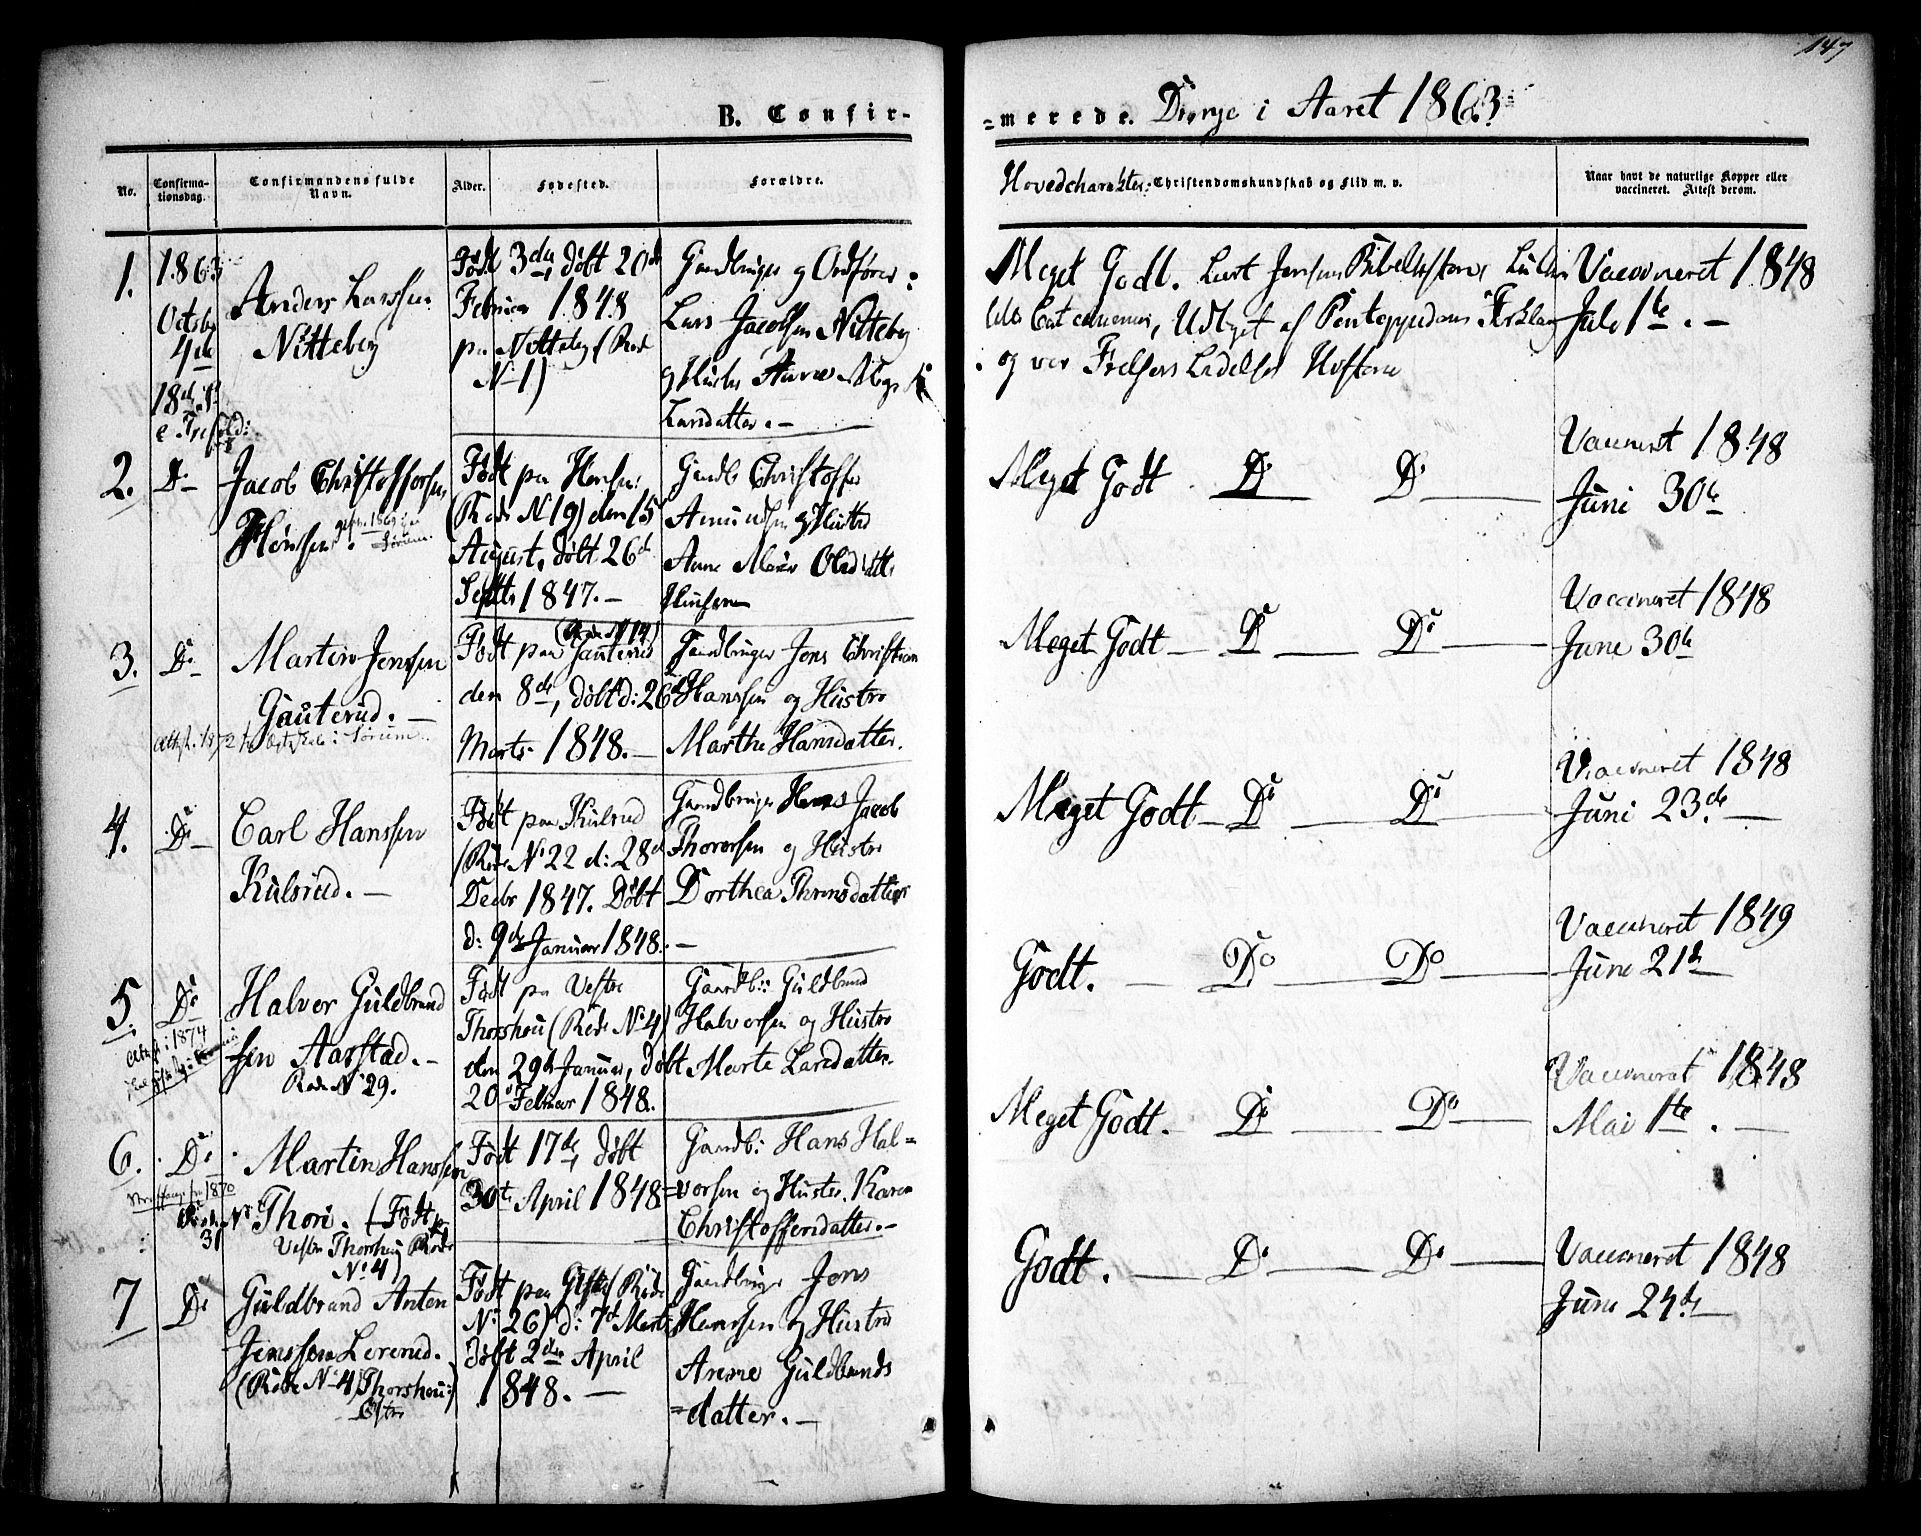 147
B. Confir-
=merede. Drenge i Aaret 1863.
No.
Confirma-
tionsdag.
Confirmandens fulde
Navn.
Alder.
Fødested.
Forældre.
Hovedcharakter: Christendomskundskab og Flid m. v.
Naar havt de naturlige Kopper eller
vaccineret. Attest derom.
1.
1863
October
4de
18de S:
e. Trefold:
Anders Larssen
Nitteberg
Født 3die, døbt 20de
Februar 1848
paa Nitteberg (Rode
No 1)
Gaardbruger og Ordfører:
Lars Jacobsen Nitteberg
og Hustru Anne
Larsdatter. –
Meget Godt. Læst Jensens Bibelhistorie,
Udtoget af Pontoppidans Forklaring
og vor Frelsers Historie
Vaccineret 1848
Juli 1te. –
2.
Do
Jacob Christoffersen
Hønsen.
1869
Sørum.
Født paa Hønsen
(Rode No 19) den 15
August, døbt 26de
Septbr 1847. –
Gaardb. Christoffer
Amundsen og Hustru
Anne Marie Olsdatter
Meget Godt Do Do
Vaccineret 1848
Juni 30te
3.
Do
Martin Jenssen
Gauterud. –
1872
Sørum.
(Rode No 14)
Født paa Gauterud
den 8de, døbt d: 26de
Marts 1848. –
Gaardbruger Jens Christian
Hanssen og Hustru
Marthe Hansdatter.
Meget Godt Do Do
Vaccineret 1848
June 30te
4.
Do
Carl Hanssen
Kulsrud. –
Født paa Kulsrud
(Rode No 22 d: 28de
Decbr 1847. Døbt
d: 9de Januar 1848. –
Gaardbruger Hans Jacob
Thorersen og Hustru
Dorthea
Meget Godt Do Do
Vaccineret 1848
Juni 23de. –
5.
Do
1874
Halvor Guldbrand
sen Aarstad. –
Rode No 29.
Født paa Vestre
Thorshou (Rode No 4)
den 29de Januar, døbt
20de Februar 1848.
Gaardb: Guldbrand
Halvorsen og Hustru
Marte Larsdatter.
Godt. Do Do
Vaccineret 1849
Juni 21de
6.
Do
1870
Martin Hanssen
Rode No
31
Thori. (Født paa
Vestre Thorshoug Rode
No 4)
Født 17de, døbt
30te April 1848
Gaardb: Hans Hal=
=vorsen og Hustru Karen
Christoffersdatter. –
Meget Godt. Do Do
Vaccineret 1848
Mai 1te. –
7
Do
Guldbrand Anton
Jenssen Lererud.
(Rode No 4) Thorshou:
Østre
Født paa (Rode
No 26) d: 7de Marts
døbt 2den April
1848. –
Gaardbruger Jens
Hanssen og Hustru
Anne Guldbrands
=datter. –
Godt. Do Do
Vaccineret 1848
Juni 24de